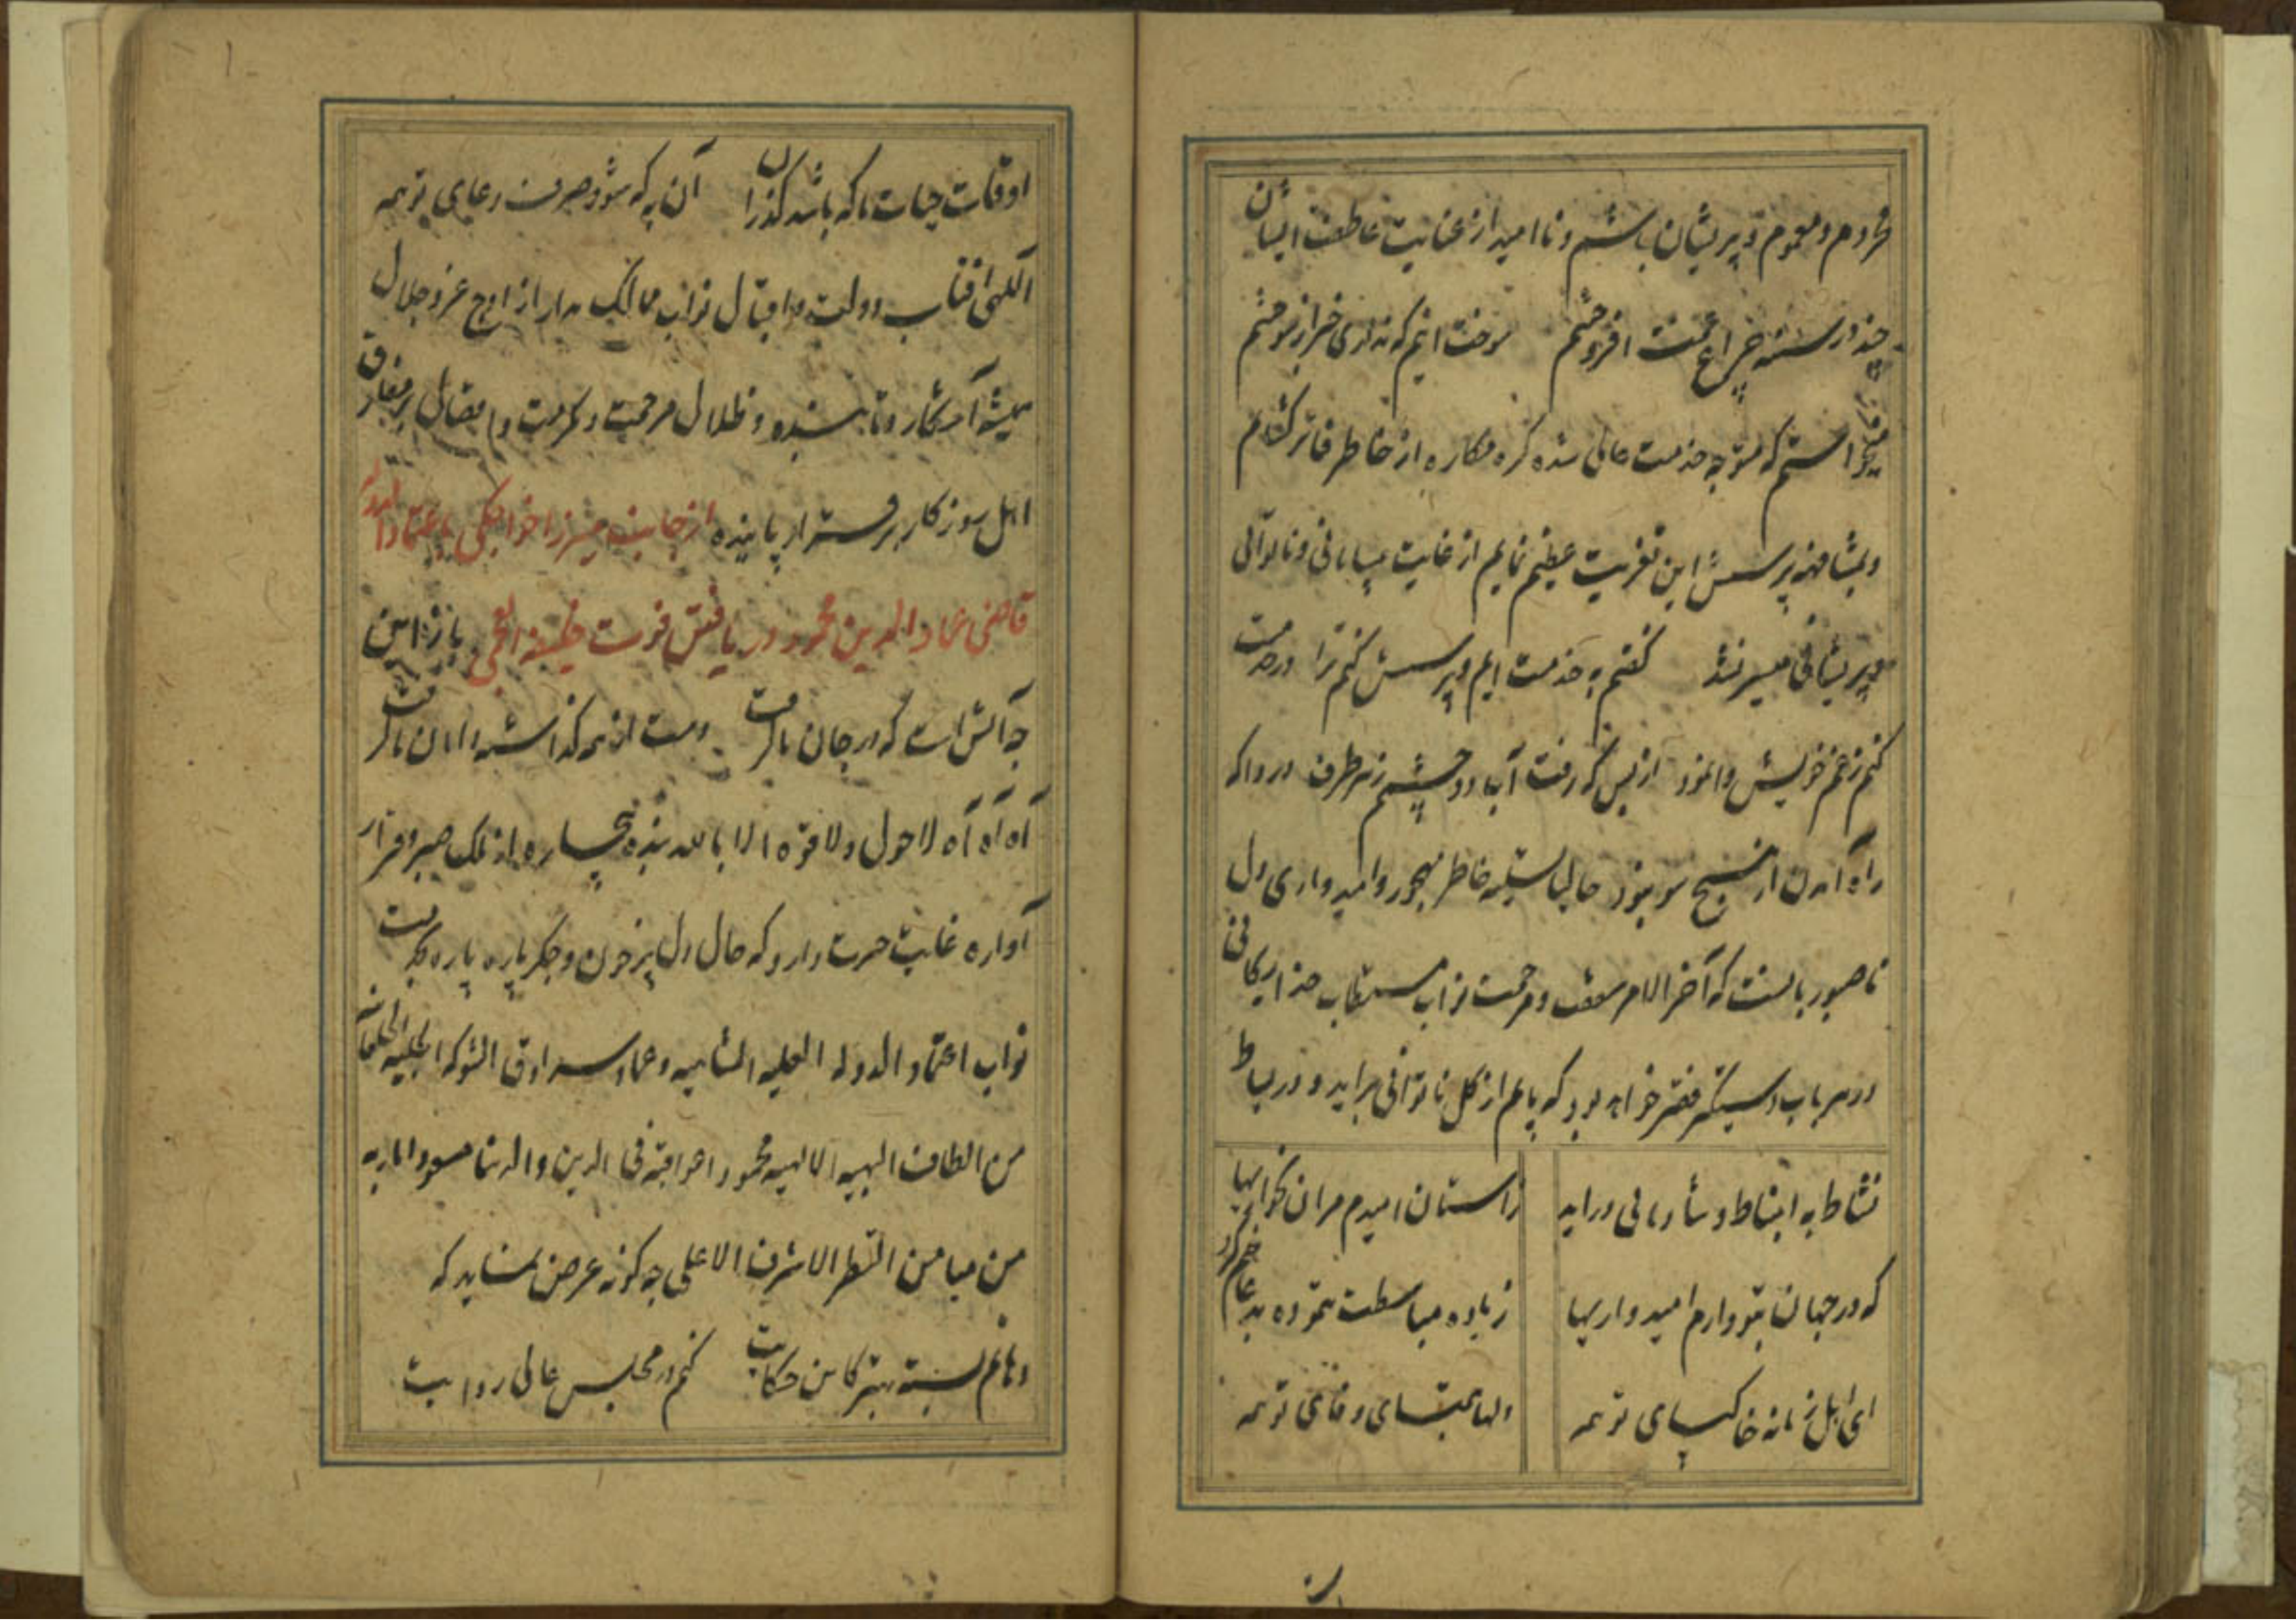 محروم و مغموم و پریشان باشم و ناامید از عنایت عاطفت ایشان
چند در سینه چراغ غمت افروختم سوخت اینم که نداری خبر از سوختنم
میخواستم که متوجه خدمت عالی شده گره مکاره از خاطر فاتر گشایم
و بمشافهه پرسش این تعزیت عظیم نمایم از غایت بیسامانی و ناتوانی
و پریشانی میسر نشد گفتم به خدمت ایم و پرسش کنم ترا در خدمت
کنم ز غم خویش وانمود از بس که رفت آب دو چشمم ز هر طرف دردا که
راه آمدن از هیچ سو نبود حالیا تسلیه خاطر مهجور و امیدواری دل
ناصبور بانست که آخر الامر سعف و مرحمت نواب مستطاب خدایگانی
در هر باب دستگیر فقیر خواهد بود که پایم از گل ناتوانی براید و در بساط
نشاط به انبساط و شادمانی دراید ز استان امیدم مران بخواریها
که در جهان بتو دارم امیدواریها زیاده مباسطت ننموده بدعا ختم کرد
ای اهل زمانه خاکپای تو همه دلها بتمنای وفای تو همه
اوقات حیات ما که باشد گذران آن به که شود صرف دعای تو همه
الهی افتاب دولت و اقبال نواب ممالک مدار از اوج عز و جلال
همیشه آشکار و تابنده و ظلال مرحمت و مکرمت و افضال بر مفارق
اهل روزکار برقرار پاینده از جانب میرزا خواجکی باعتماد الدوله
قاضی عماد الدین محمود در یافتن فوت خلیفه القمی باز این
چه آتش است که در جان ما گرفت دست از همه گذاشته دامان ما گرفت
آه آه آه لا حول ولا قوة الا بالله بنده بیچاره از ملک صبر و قرار
آواره غایت حیرت دارد که حال دل پر خون و جگر پاره پاره بخدمت
نواب اعتماد الدوله العلیه الشاهیه و عماد سرادق الشوکه الجلیه
من الطاف البهیه الالهیه محمودا عواقبه فی الدین و الدنیا مسعودا
من میامن النظر الاشرف الاعلی چه کونه عرض نماید که
دهانم بسته بهتر کاین حکایت کنم در مجلس عالی روایت